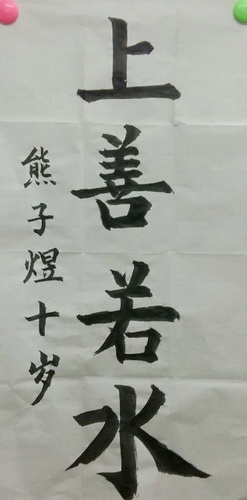 上善若水
熊子煜十岁